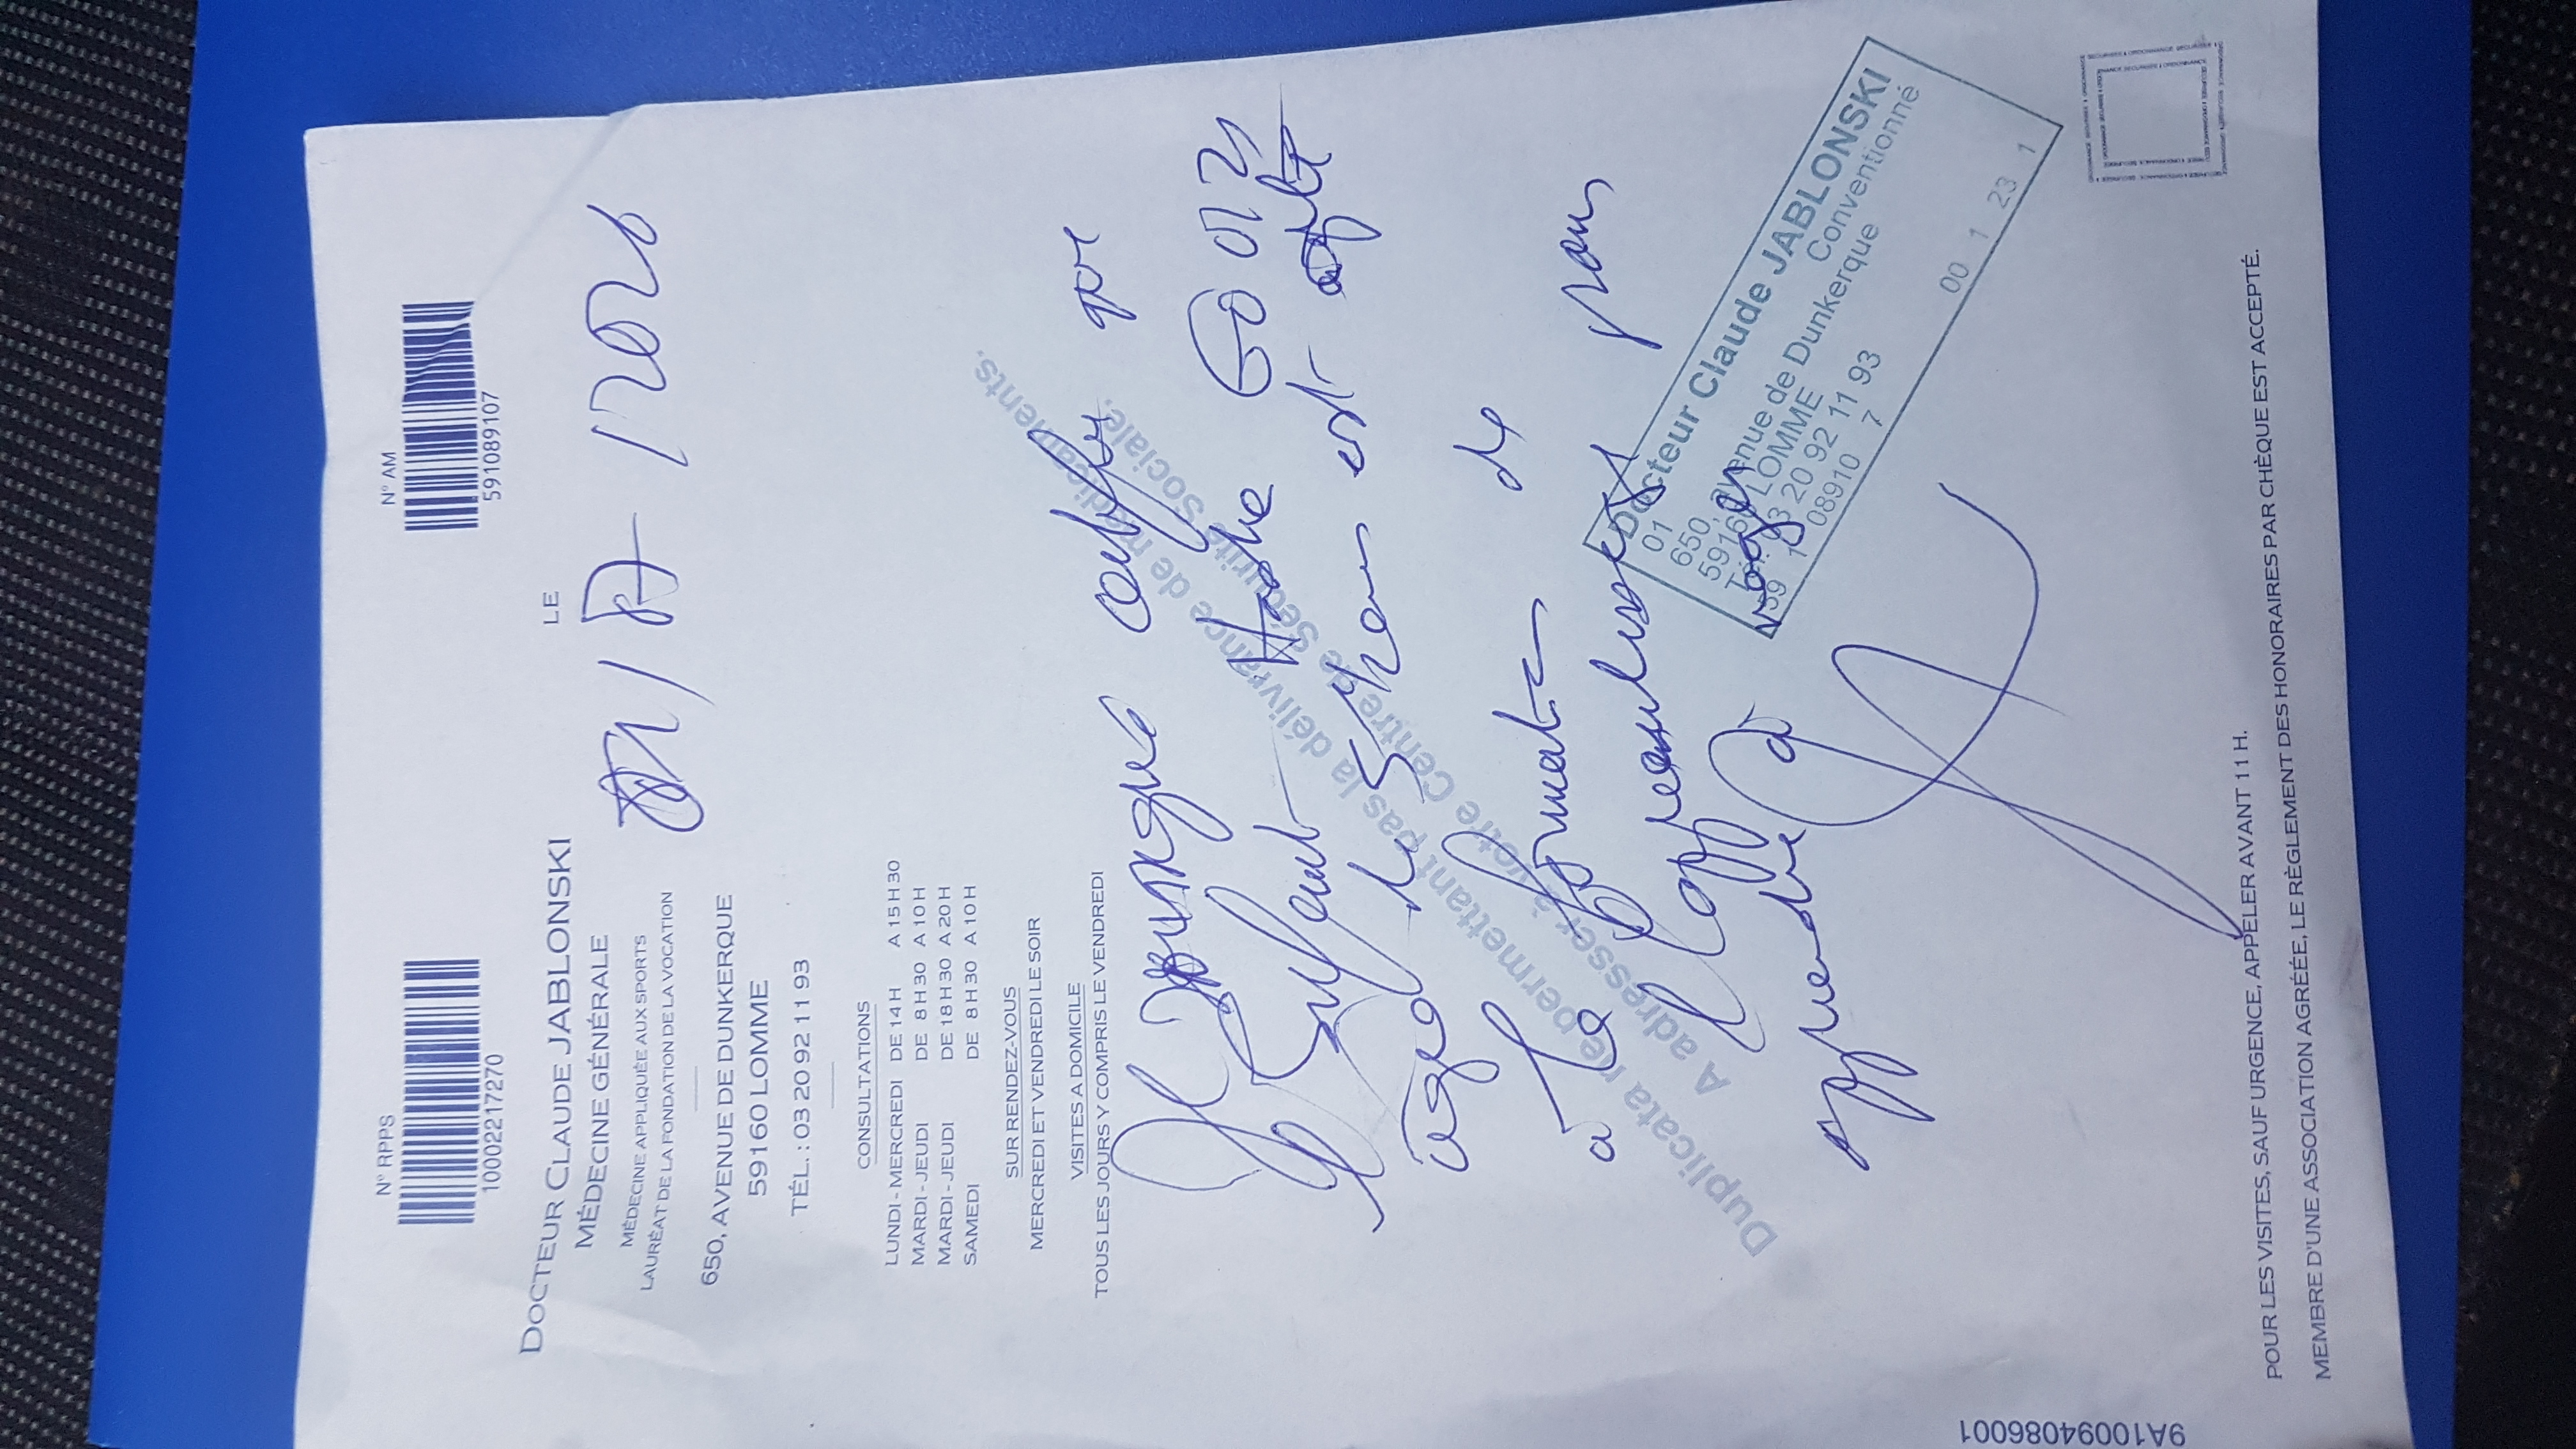 N° RPPS
10002217270
N° AM
591089107
DOCTEUR CLAUDE JABLONSKI
MÉDECINE GÉNÉRALE
MÉDECINE APPLIQUÉE AUX SPORTS
LAURÉAT DE LA FONDATION DE LA VOCATION
650, AVENUE DE DUNKERQUE
59160 LOMME
TÉL. : 03 20 92 11 93
LE
CONSULTATIONS
LUNDI - MERCREDI DE 14 H A 15 H 30
MARDI - JEUDI DE 8 H 30 A 10 H
MARDI - JEUDI DE 18 H 30 A 20 H
SAMEDI DE 8 H 30 A 10 H
SUR RENDEZ-VOUS
MERCREDI ET VENDREDI LE SOIR
VISITES A DOMICILE
TOUS LES JOURS Y COMPRIS LE VENDREDI
Je soussigné certifie que
l'Enfant
âgé de 5 ans est apte
à la formation de
l'app
apprendre à nager
Duplicata ne permettant pas la délivrance de médicaments.
A adresser à votre Centre de Sécurité Sociale.
Docteur Claude JABLONSKI
01 Conventionné
650, avenue de Dunkerque
59160 LOMME
Tél. 03 20 92 11 93
59 1 08910 7 00 1 23 1
POUR LES VISITES, SAUF URGENCE, APPELER AVANT 11 H.
MEMBRE D'UNE ASSOCIATION AGRÉÉE, LE RÈGLEMENT DES HONORAIRES PAR CHÈQUE EST ACCEPTÉ.
9A10094086001